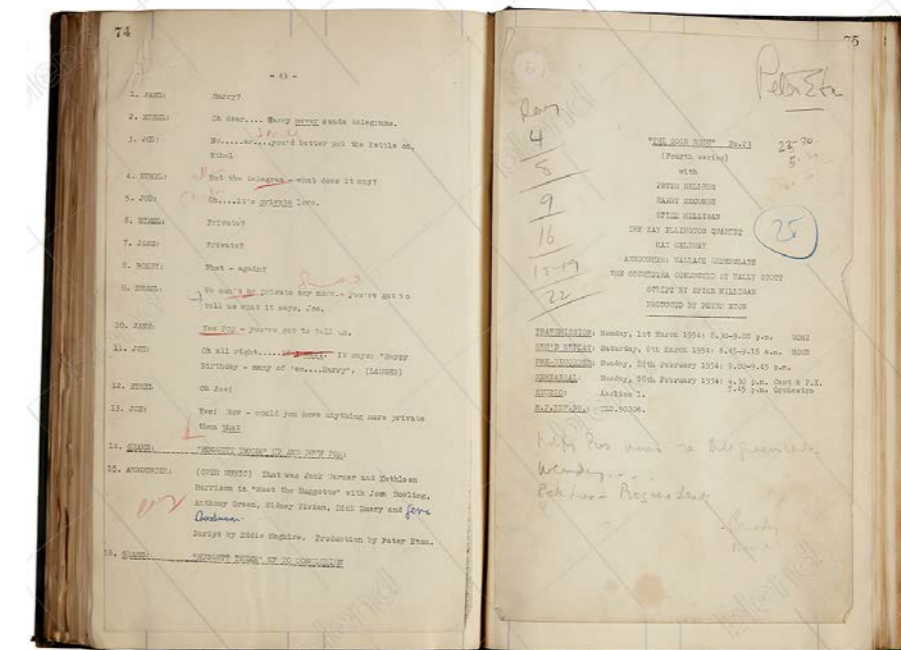 74
- 43 -
1. JANE: Harry?
2. ETHEL: Oh dear.... Harry never sends telegrams.
3. JOE: No.....er....you'd better put the kettle on,
Ethel
4. ETHEL: But the telegram - what does it say?
5. JOE: Oh....it's private love.
6. ETHEL: Private?
7. JANE: Private?
8. BOBBY: What - again?
9. ETHEL: No can't be private any more - you've got to
tell us what it says, Joe.
10. JANE: Yes Pop - you've got to tell us.
11. JOE: Oh all right..... It says: "Happy
Birthday - many of 'em....Harry". (LAUGHS)
12. ETHEL Oh Joe!
13. JOE: Yes! Now - could you have anything more private
than that
14. GRAMS: "HUGGETT THEME" UP AND DOWN FOR:
15. ANNOUNCER: (OVER MUSIC) That was Jack Warner and Kathleen
Harrison in "Meet the Huggetts" with Joan Dowling,
Anthony Green, Sidney Vivian, Dick Emery and
Script by Eddie Maguire. Production by Peter Eton.
16. GRAMS: "HUGGETT THEME" UP TO CONCLUSION
75
Peter Eton
4
8
9
16
22
"THE GOON SHOW" No.23
(Fourth series)
with
PETER SELLERS
HARRY SECOMBE
SPIKE MILLIGAN
THE RAY ELLINGTON QUARTET
MAX GELDRAY
ANNOUNCER: WALLACE GREENSLADE
THE ORCHESTRA CONDUCTED BY WALLY STOTT
SCRIPT BY SPIKE MILLIGAN
PRODUCED BY PETER ETON
25
TRANSMISSION: Monday, 1st March 1954: 8.30-9.00 p.m. HOME
REC'D REPLAY: Saturday, 6th March 1954: 8.45-9.15 a.m. HOME
PRE-RECORDED: Sunday, 28th February 1954: 9.00-9.45 p.m.
REHEARSAL: Sunday, 28th February 1954: 4.30 p.m. Cast & F.X.
5.45 p.m. Orchestra
STUDIO: Aeolian 1.
R.P.REF.NO.: TLO.50206.